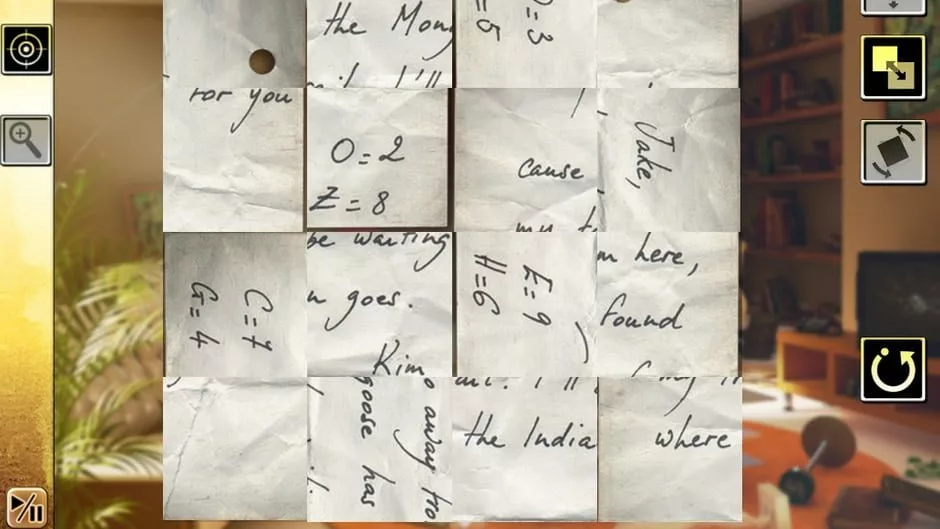 the Mong
=3
=5
I'll
for you
O=2
Z=8
cause
my
Jake,
C=7
G=4
be waiting
goes.
Kim
E=9
H=6
here,
found
away fro
goose has
I'll
the India
where